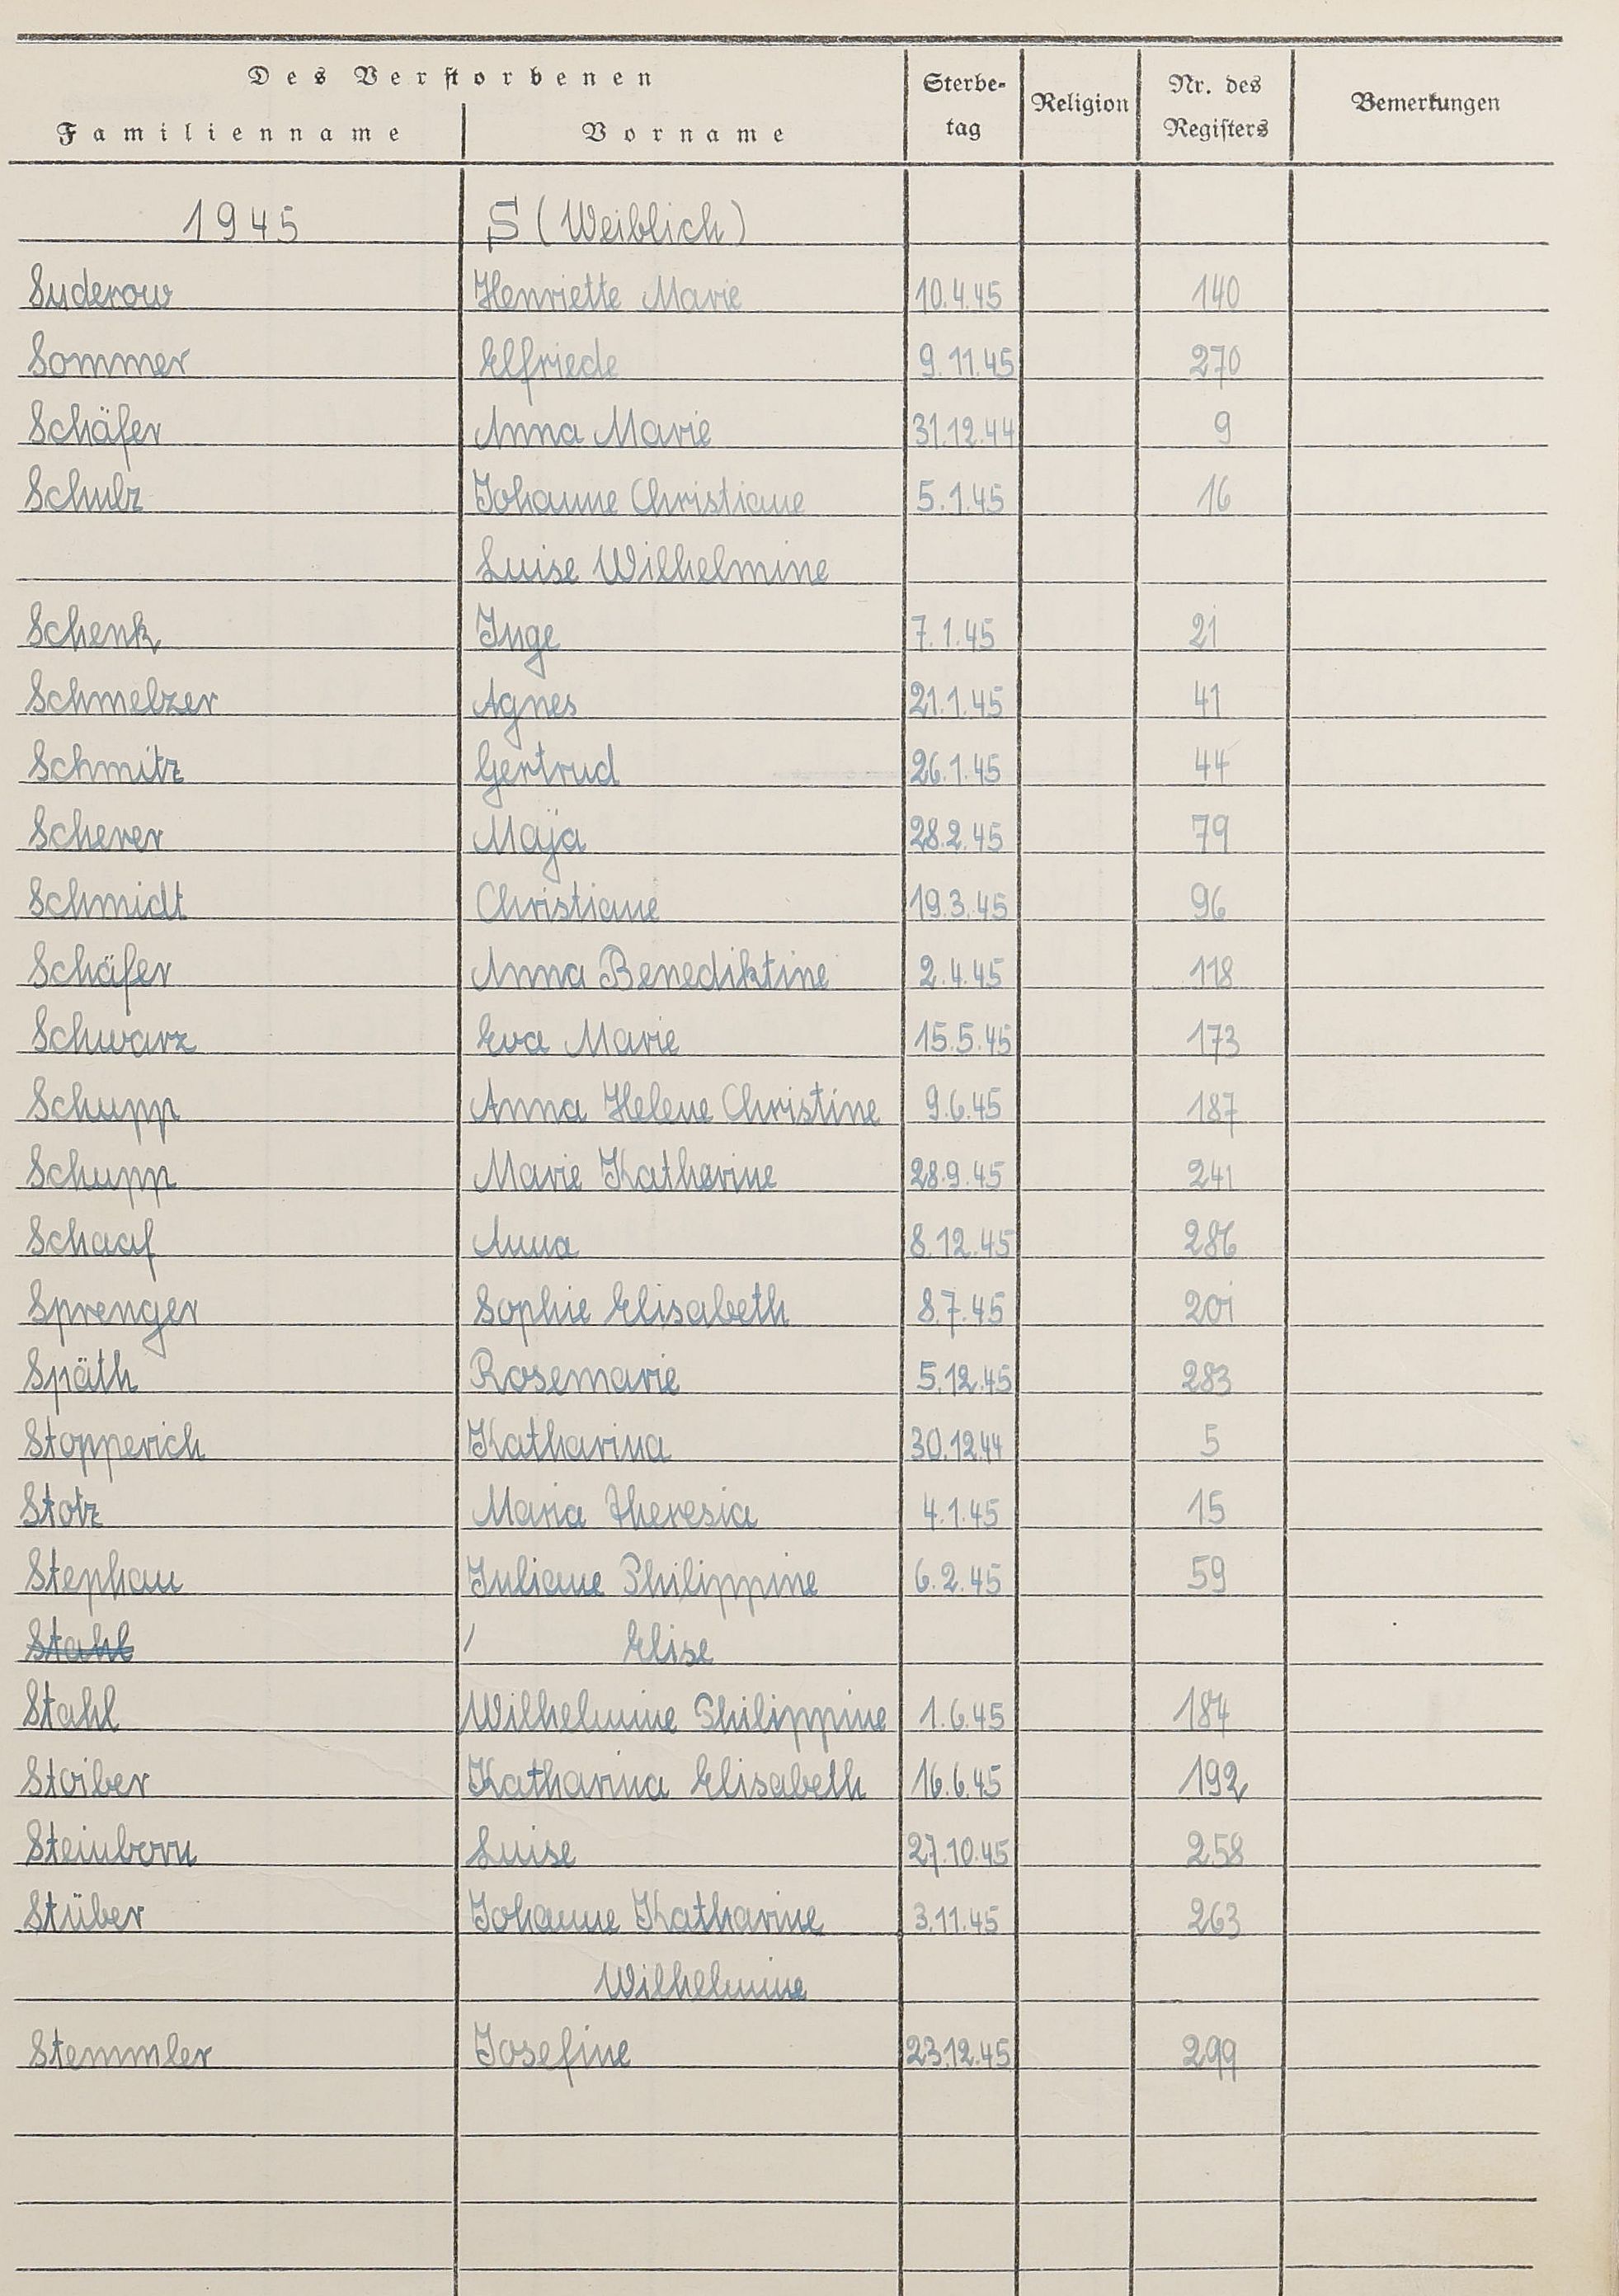 Des Verstorbenen
Familienname Vorname Sterbe-tag Religion Nr. des Registers Bemerkungen
1945 S (Weiblich)
Suderow Henriette Marie 10.4.45 140
Sommer Elfriede 9.11.45 270
Schäfer Anna Marie 31.12.44 9
Schulz Johanne Christiane 5.1.45 16
Luise Wilhelmine
Schenk Inge 7.1.45 21
Schmelzer Agnes 21.1.45 41
Schmitz Gertrud 26.1.45 44
Scherer Maja 28.2.45 79
Schmidt Christiane 19.3.45 96
Schäfer Anna Benediktine 2.4.45 118
Schwarz Eva Marie 15.5.45 173
Schupp Anna Helene Christine 9.6.45 187
Schupp Marie Katharine 28.9.45 241
Schaaf Anna 8.12.45 286
Sprenger Sophie Elisabeth 8.7.45 201
Späth Rosemarie 5.12.45 283
Stopperich Katharina 30.12.44 5
Stotz Maria Theresia 4.1.45 15
Stephan Juliane Philippine 6.2.45 59
Stahl Elise
Stahl Wilhelmine Philippine 1.6.45 184
Stoiber Katharina Elisabeth 16.6.45 192
Steinborn Luise 27.10.45 258
Stüber Johanne Katharine 3.11.45 263
Wilhelmine
Stemmler Josefine 23.12.45 299